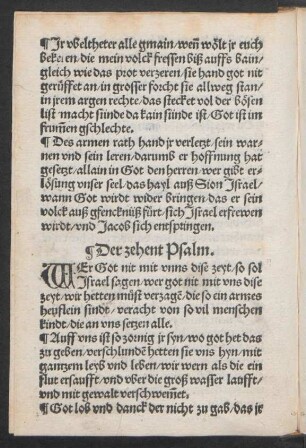 ¶ Jr vbeltheter alle gmain/weñ wölt jr euch
bekeren/die mein volck fressen biß auffs bain/
gleich wie das prot verzeren/sie hand got nit
gerüfft an/in grosser forcht sie allweg stan/
in jrem argen rechte/das stecket vol der bösen
list macht sünde da kain sünde ist/Got ist im
frummen gschlechte.
¶ Des armen rath hand jr verletzt/sein war-
nen vnd sein leren/darumb er hoffnung hat
gesetzt/allain in Got den herren/wer gibt er-
lösung vnser seel/das hayl auß Sion Israel/
wann Got wirdt wider bringen/das er sein
volck auß gfencknüß fürt/sich Israel erfrewen
wirdt/vnd Jacob sich entspringen.
¶ Der zehent Psalm.
WEr Got nit mit vnns dise zeyt/so sol
Israel sagen/wer got nit mit vns dise
zeyt/wir hetten müst verzagē/die so ein armes
heyflein sindt/veracht von so vil menschen
kindt/die an vns setzen alle.
¶ Auff vns ist so zornig jr syn/wo got het das
zu geben/verschlundē hetten sie vns hyn/mit
gantzem leyb vnd leben/wir wern als die ein
flut ersaufft/vnd vber die groß wasser laufft/
vnd mit gewalt verschwemet.
¶ Got lob vnd danck der nicht zu gab/das jr